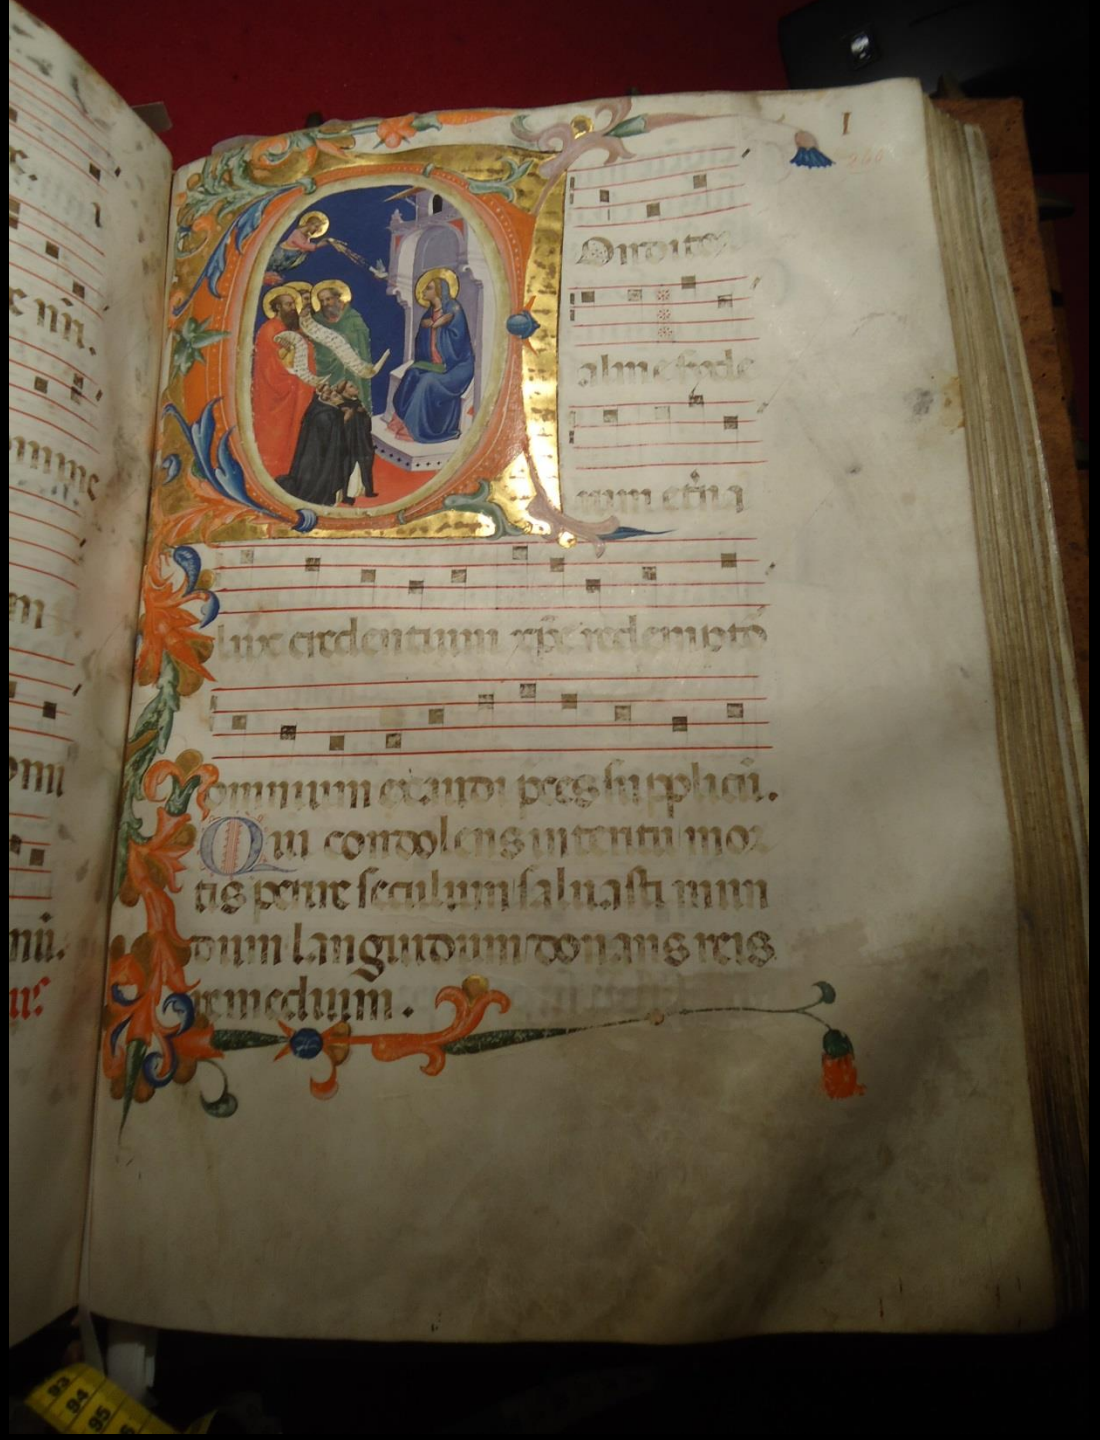 I
260
Onditor
alme side
rum etna
lux credentium xpe redempto
omnium exaudi preces supplicu.
Qui condolens interitu mor
tis perire seculum saluasti mun
dum languidum donans reis
remedium.
93
94
95